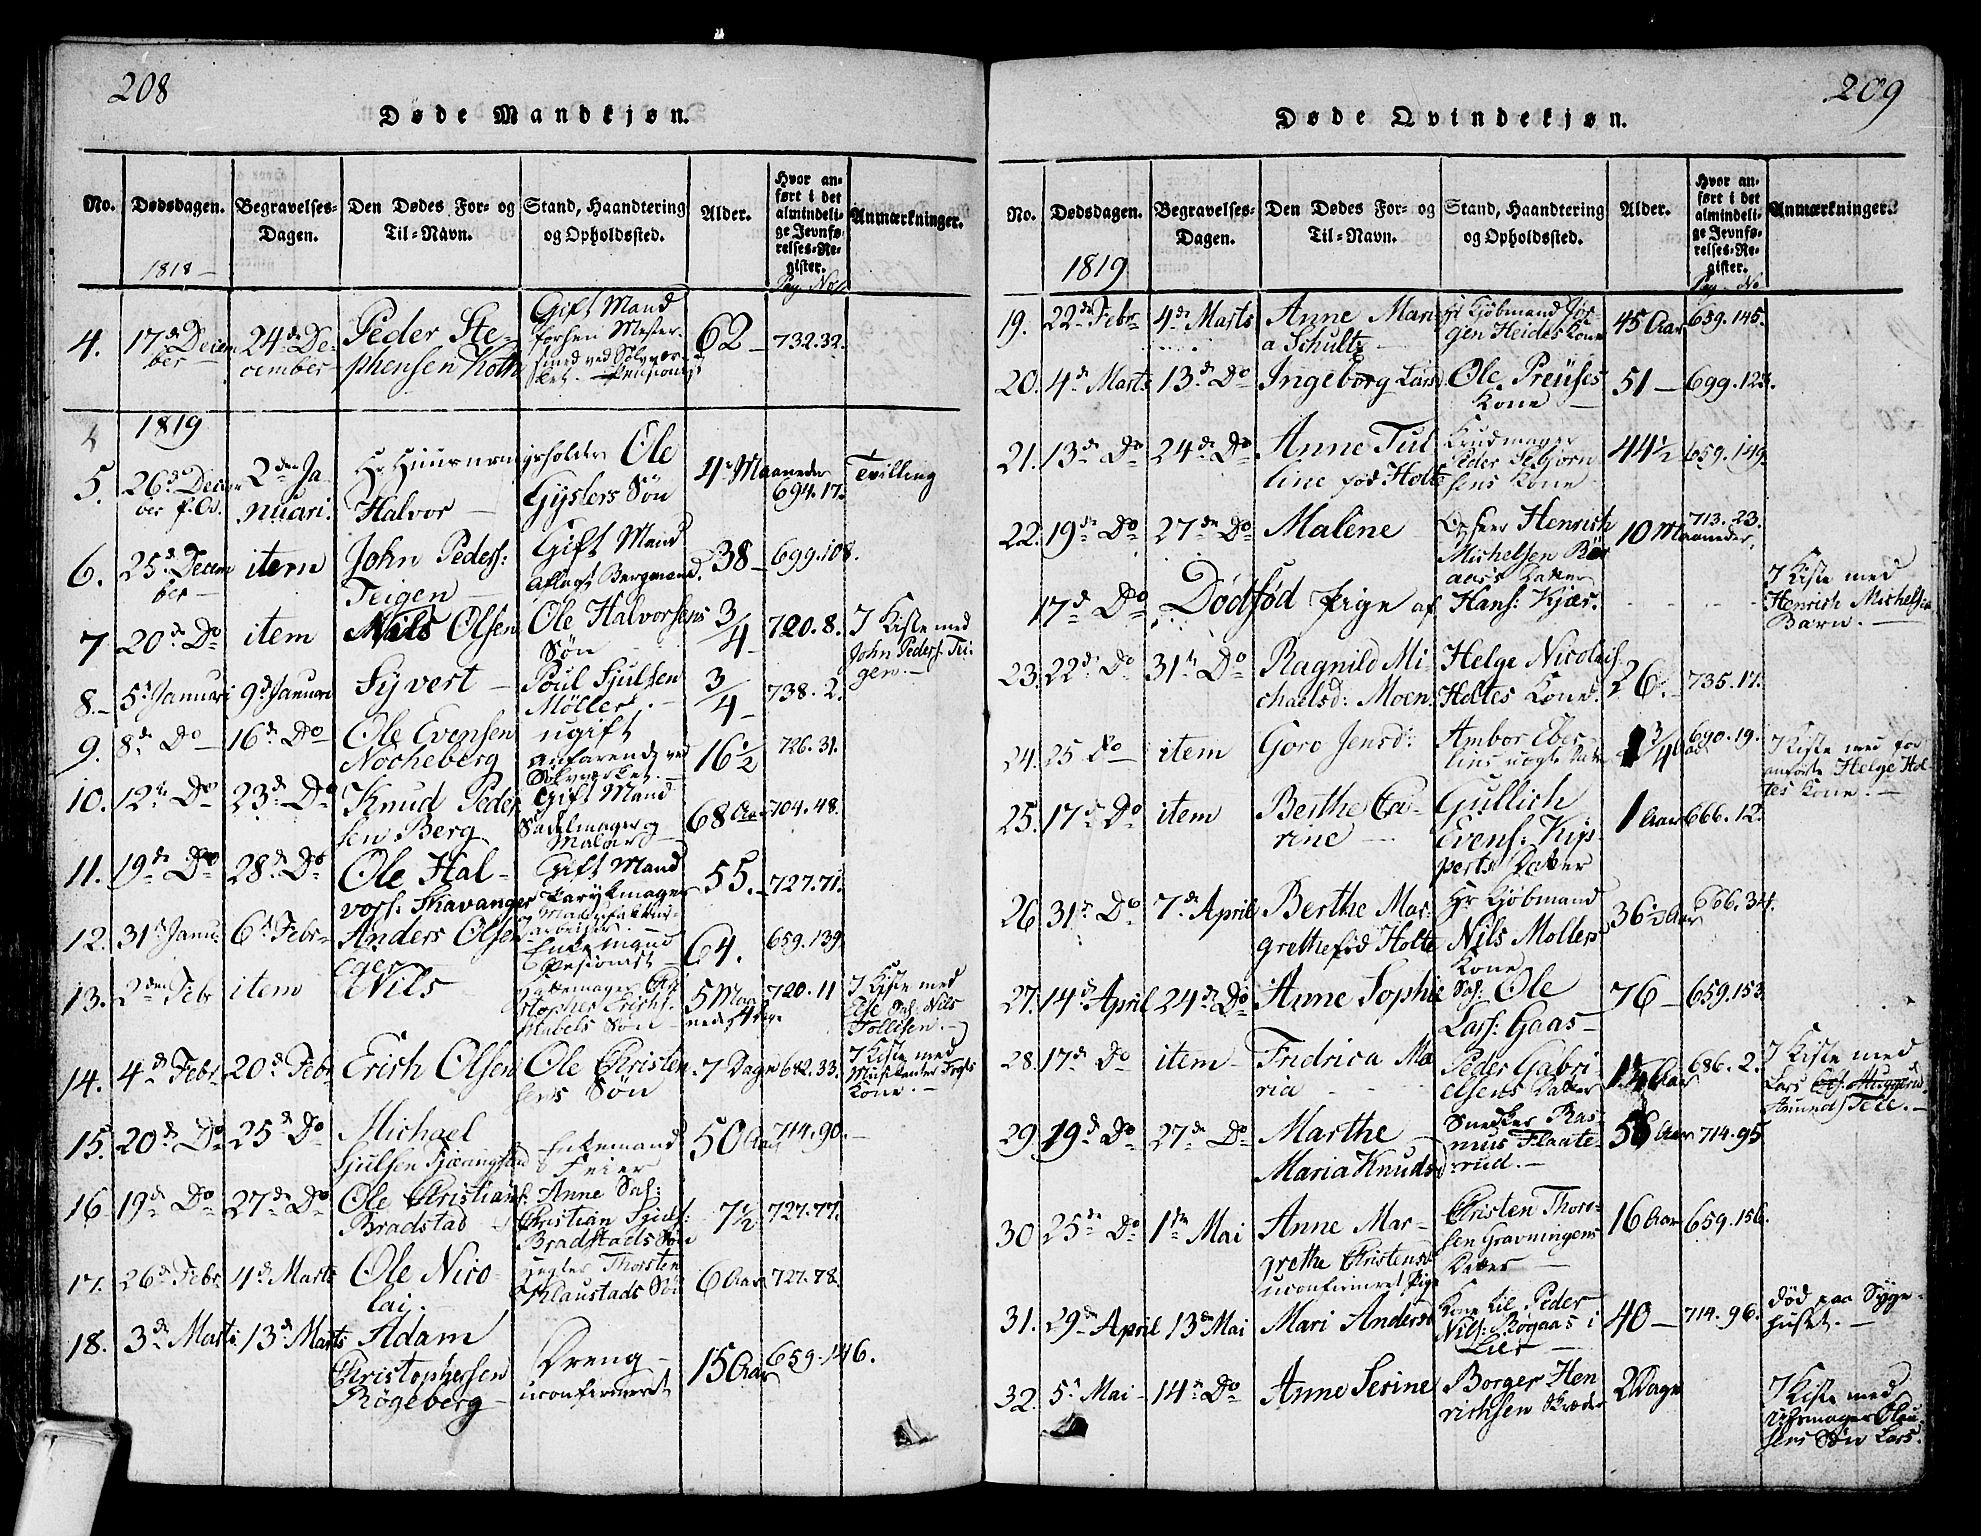 208
Døde Mandkjøn.
No.
Dødsdagen.
Begravelses-
Dagen.
Den Dødes For- og
Til-Navn.
Stand, Haandtering
og Opholdssted.
Alder.
Hvor an-
ført i det
almindeli-
ge Jevnfø-
relses-Re-
gister.
Anmærkninger.
1818
Pag. No.
4. 17de Decem
ber
24de De-
cember
Peder Ste-
phensen Koth
Gift Mand
forhen Mester-
smed ved Sølvvær-
ket. Pensionist
62 732.32.
1819
5. 26de Decem
ber f. A.
2den Ja-
nuari.
Hr Huusmængsholder Ole
Halvor
Gyslers Søn
4 Maaneder
694.17.
Tvilling
6. 25de Decem
ber
item
John Peders:
Teigen
Gift Mand
aflagt Bergmand.
38 699.108.
7 20de Do
item
Nils Olsen
Ole Halvorsens
Søn
3/4 720.8.
I Kiste med
John Peders: Tei-
gen.
8. 5te Januari
9de Januari
Syvert
Poul Sjulsen
Möller.
3/4 738.2.
9. 8de Do
16de Do
Ole Evensen
Nocheberg
ugift
anfarende ved
Sølvværket.
16 1/2 726.31.
10. 12te Do
23de Do
Knud Peder
sen Berg
Gift Mand
Sadelmager og
Maler
68 Aar 704.48.
11. 19de Do
28de Do
Ole Hal-
vors: Skavanger
Gift Mand
Parykmager
55. 727.71.
12. 31te Janu.
6te Febr
Anders Olsen
Eger
arbeider.
Enkemand
Pensionist
64. 659.139.
13. 2den Febr
item
Nils
stopher Erichs:
Stubels Søn
5 Maa
neder 4 Dage
720.11
I Kiste med
Else Sal: Nils
Tollefsen.
14. 4de Febr
20de Febr
Erich Olsen
Ole Christen
sens Søn
7 Dage 682.33.
I Kiste med
Musikanter Frøls
Kone.
15. 20de Do
25de Do
Michael
Sjulsen
Enkemand
Feier
50 Aar 714.90.
16 19de Do
27de Do
Ole Christians:
Bradstad
Anne Sal:
Christian Sjuls:
Bradstads Søn
7 1/2 727.77.
17. 26de Febr.
4de Marts
Ole Nico-
lai.
Thorsten
Klaustads Søn
6 Aar 727.78.
18. 3de Marts
13de Marts
Adam
Christophersen
Røgeberg
Dreng
uconfirmeret
15 Aar 659.146.
209
Døde Qvindekjøn.
No.
Dødsdagen.
Begravelses-
Dagen.
Den Dødes For- og
Til-Navn.
Stand, Haandtering
og Opholdssted.
Alder.
Hvor an-
ført i det
almindeli-
ge Jevnfø-
relses-Re-
gister.
Anmærkninger.
1819
Pag. No
19. 22de Febr
4de Marts
Anne Mari
a Schultz
Hr Kjöbmand Jör-
gen Heides Kone
45 Aar 659.145.
20. 4de Marts
13de Do
Ingeborg Larsd
Ole Preuses
Kone
51 699.123.
21. 13de Do
24de Do
Anne Tul
line fød Holte
Krudmager
Peder Esbjørn
sens Kone
44 1/2 659.149.
22. 19de Do
27de Do
Malene
Henrich
Michelsen Rør
aas's Datter
10 Maaneder,
713.23.
17de Do
Dødfød Pige af
Hans: Kjær.
I Kiste med
Henrich Michelsens
Barn.
23. 22de Do
31te Do
Ragnild Mi
chaelsd: Moen
Helge Nicolais
Holtes Kone
26. 735.17.
24. 25 Do
item
Goro Jensd:
Ambor Eber-
lins uægte Datter
1 3/4 Aar 690.19.
I Kiste med for
anførte Helge Hol
tes Kone.
25. 17de Do
item
Berthe Ca-
rine
Gullich
Evens: Kips-
perts Datter
1 Aar 666.12.
26. 31te Do
7de April
Berthe Mar-
grethe fød Holte
Hr Kjöbmand
Nils Mollers
Kone
36 1/2 Aar 666.34.
27. 14de April
24de Do
Anne Sophie
Sal: Ole
Lars: Gaas
76 659.153
28. 17de Do
item
Fridrica Ma
ria
Peder Gabri
elsens Datter
14 Aar 686.2.
I Kiste med
Lars
Amunds: Tele.
29. 19de Do
27de Do
Marthe
Maria Knudsd
Snedker Ras-
mus Flaate-
rud.
56 Aar 714.95
30 25de Do
1ste Mai
Anne Mar-
grethe Christensd
uconfirmeret Pige
Christen Thors-
sen Gravningens
Datter
16 Aar 659.156.
31. 29de April
13de Mai
Mari Andersd
Kone til Peder
Nils: Bogaas i
Lier
40 714.96.
død paa Syge-
huset.
32. 5te Mai
14de Do
Anne Serine
Borger Hen
richsen Skræder
2 Dage
I Kiste med
Uhrmager Olau-
sens Søn Lars.